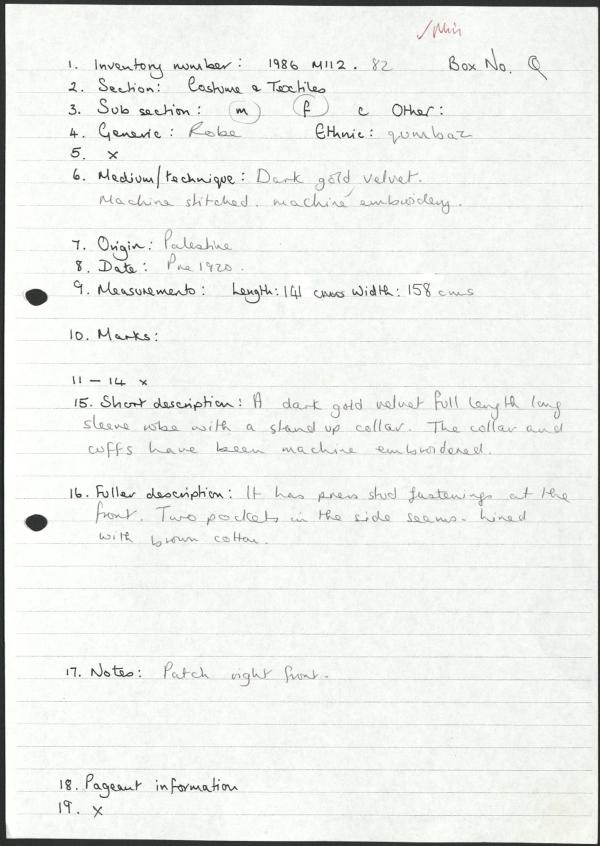 1. Inventory number: 1986 M112. 82 Box No. Q
2. Section: Costume & Textiles
3. Sub section: m f c Other:
4. Generic: Robe Ethnic: qumbaz
5. x
6. Medium/technique: Dark gold velvet.
Machine stitched. machine embroidery.
7. Origin: Palestine
8. Date: Pre 1920.
9. Measurements: Length: 141 cms Width: 158 cms
10. Marks:
11 – 14 x
15. Short description: A dark gold velvet full length long
sleeve robe with a stand up collar. The collar and
cuffs have been machine embroidered.
16. Fuller description: It has press stud fastenings at the
front. Two pockets in the side seams. Lined
with brown cotton.
17. Notes: Patch right front.
18. Pageant information
19. x